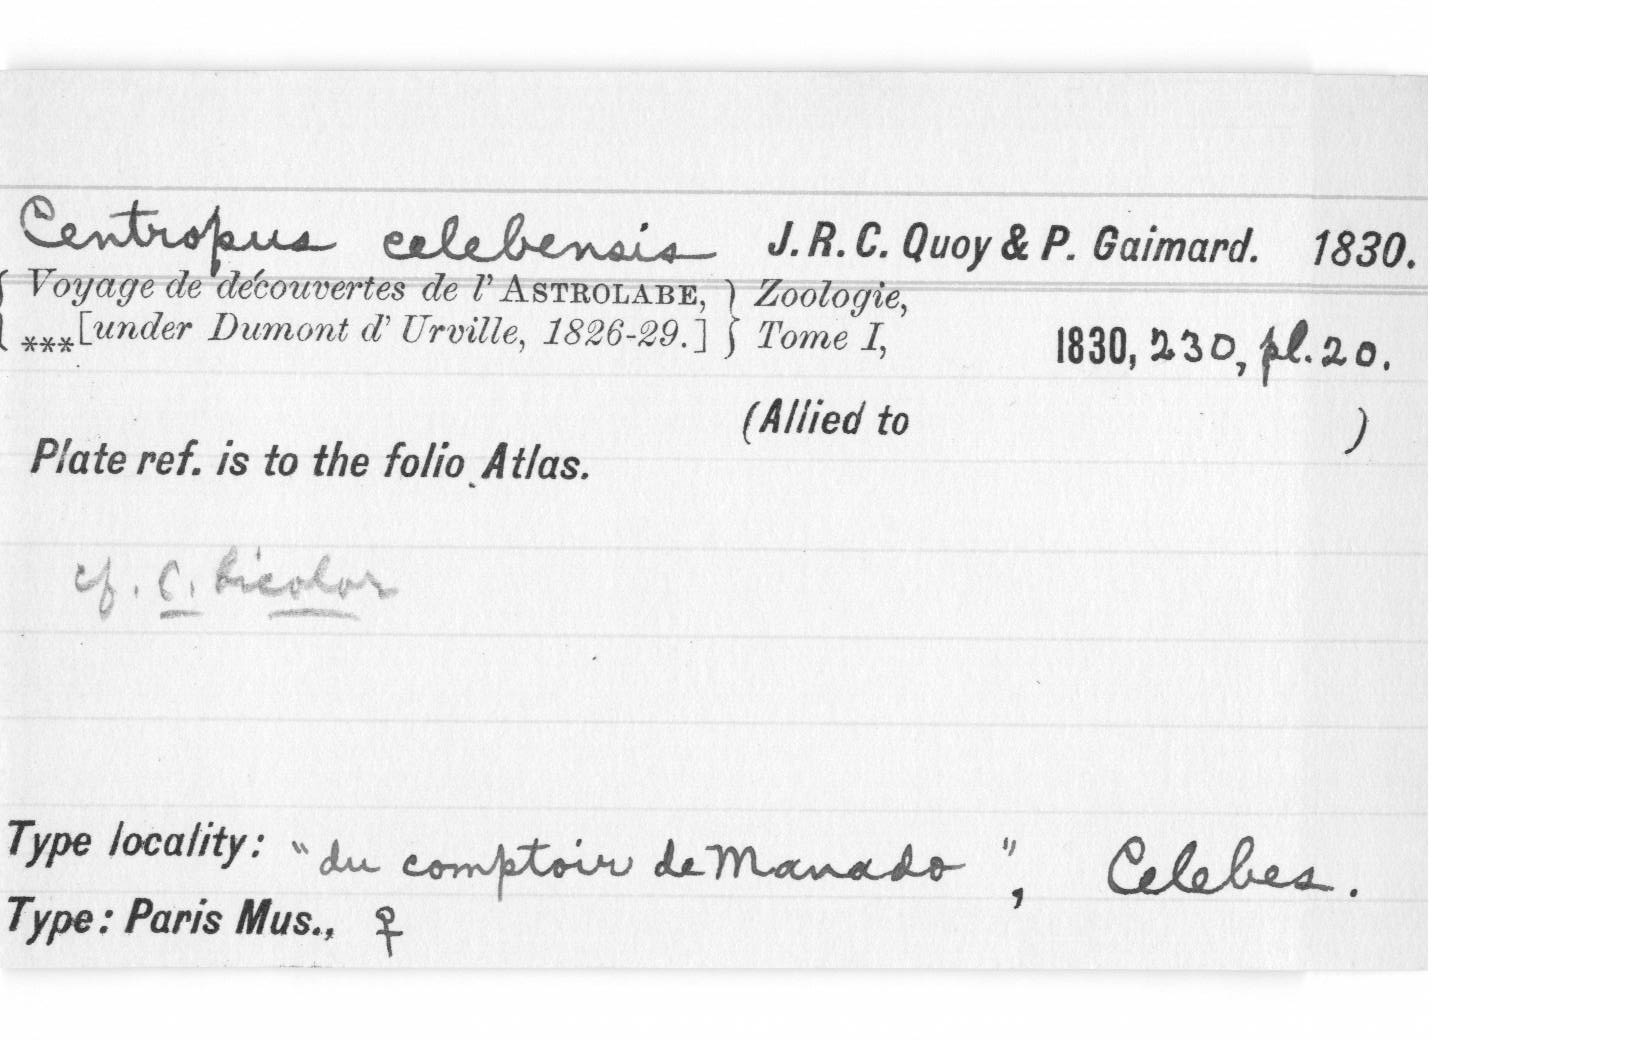 Centropus celebensis J. R. C. Quoy & P. Gaimard. 1830.
{ Voyage de découvertes de l' ASTROLABE, } Zoologie,
{ ***[under Dumont d' Urville, 1826-29.] } Tome I, 1830, 230, pl. 20.
(Allied to )
Plate ref. is to the folio Atlas.
cf. C. bicolor
Type locality: "du comptoir de Manado", Celebes.
Type: Paris Mus., ♀